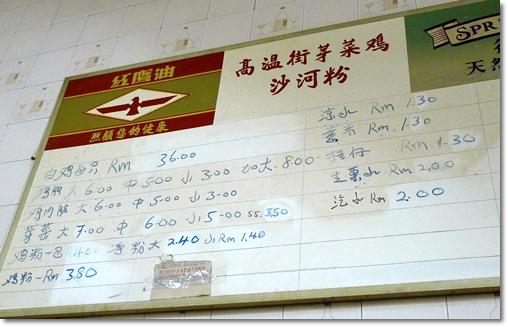 红鹰油
照顾您的健康
高温街芽菜鸡
沙河粉
SPR
天然
白鸡每只 Rm 36.00
鸡胸大 6.00 中 5.00 小 3.00 加大 8.00
鸡内脏大 6.00 中 5.00 小 3.00
芽菜大 7.00 中 6.00 小 5.00 ss. 3.50
鸡粉一包 Rm 4.00 净粉大 2.40 小Rm 1.40
鸡粉 - Rm 3.80
凉水 Rm 1.30
薏米 Rm. 1.30
桔仔 Rm. 1.30
生菓水 Rm 2.00
汽水 Rm 2.00